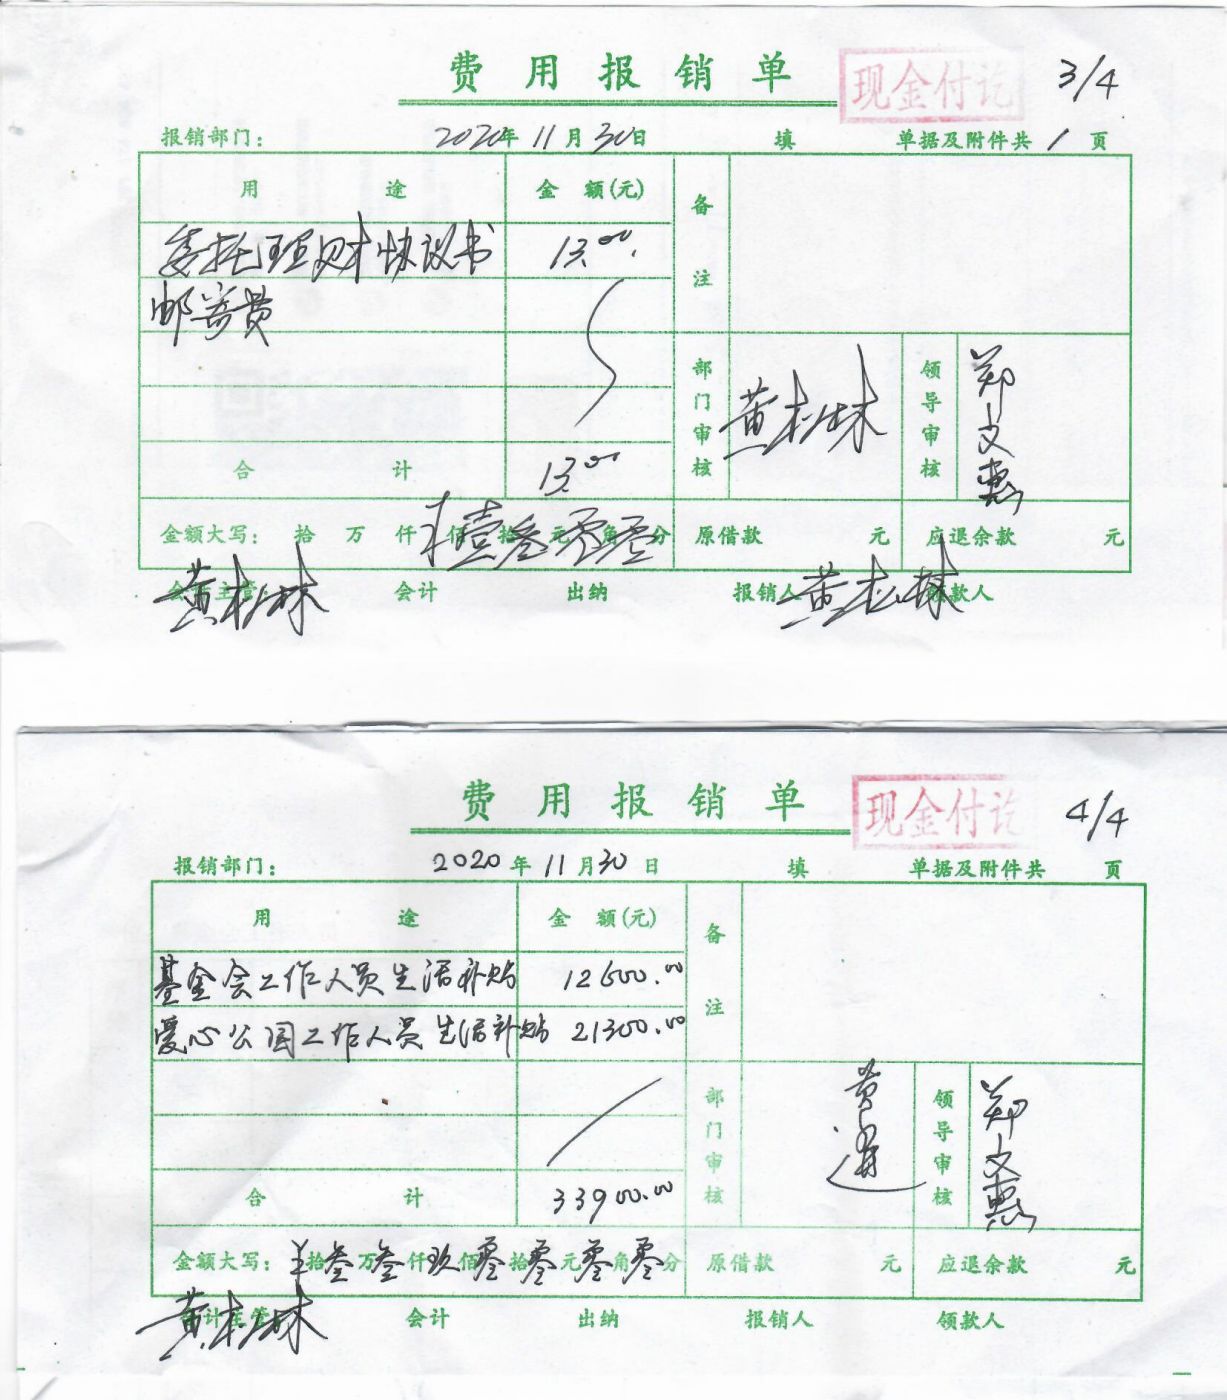 费用报销单 现金付讫 3/4
报销部门： 2020年11月30日 填 单据及附件共 1 页
用途 金额(元) 备注
委托理财协议书 13.00
邮寄费
部门审核 黄松林 领导审核 郑文惠
合计 13.00
金额大写： 拾 万 仟 ¥ 佰 壹 拾 叁 元 零 角 零 分 原借款 元 应退余款 元
会计主管 黄松林 会计 出纳 报销人 黄松林 领款人
费用报销单 现金付讫 4/4
报销部门： 2020年11月30日 填 单据及附件共 页
用途 金额(元) 备注
基金会工作人员生活补贴 12600.00
爱心公园工作人员生活补贴 21300.00
部门审核 黄 领导审核 郑文惠
合计 33900.00
金额大写： ¥ 拾 叁 万 叁 仟 玖 佰 零 拾 零 元 零 角 零 分 原借款 元 应退余款 元
会计主管 黄松林 会计 出纳 报销人 领款人